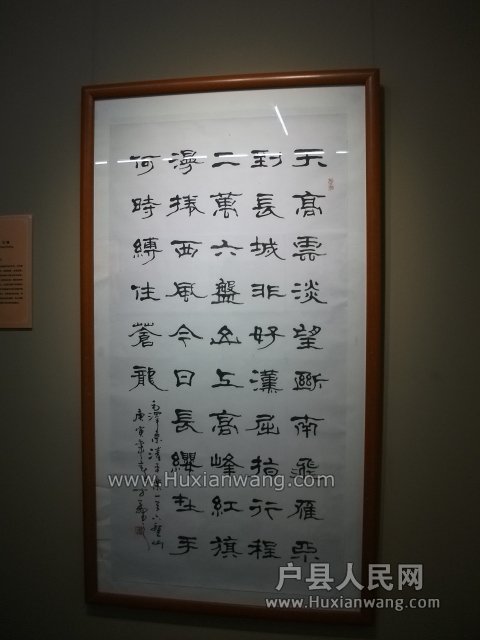 天高雲淡望斷南飛雁不
到長城非好漢屈指行程
二萬六盤山上高峰紅旗
漫西風今日長纓在手
何時縛住蒼龍
毛澤東清平樂一首六盤山
庚寅年
www.Huxianwang.com
户县人民网
www.Huxianwang.com